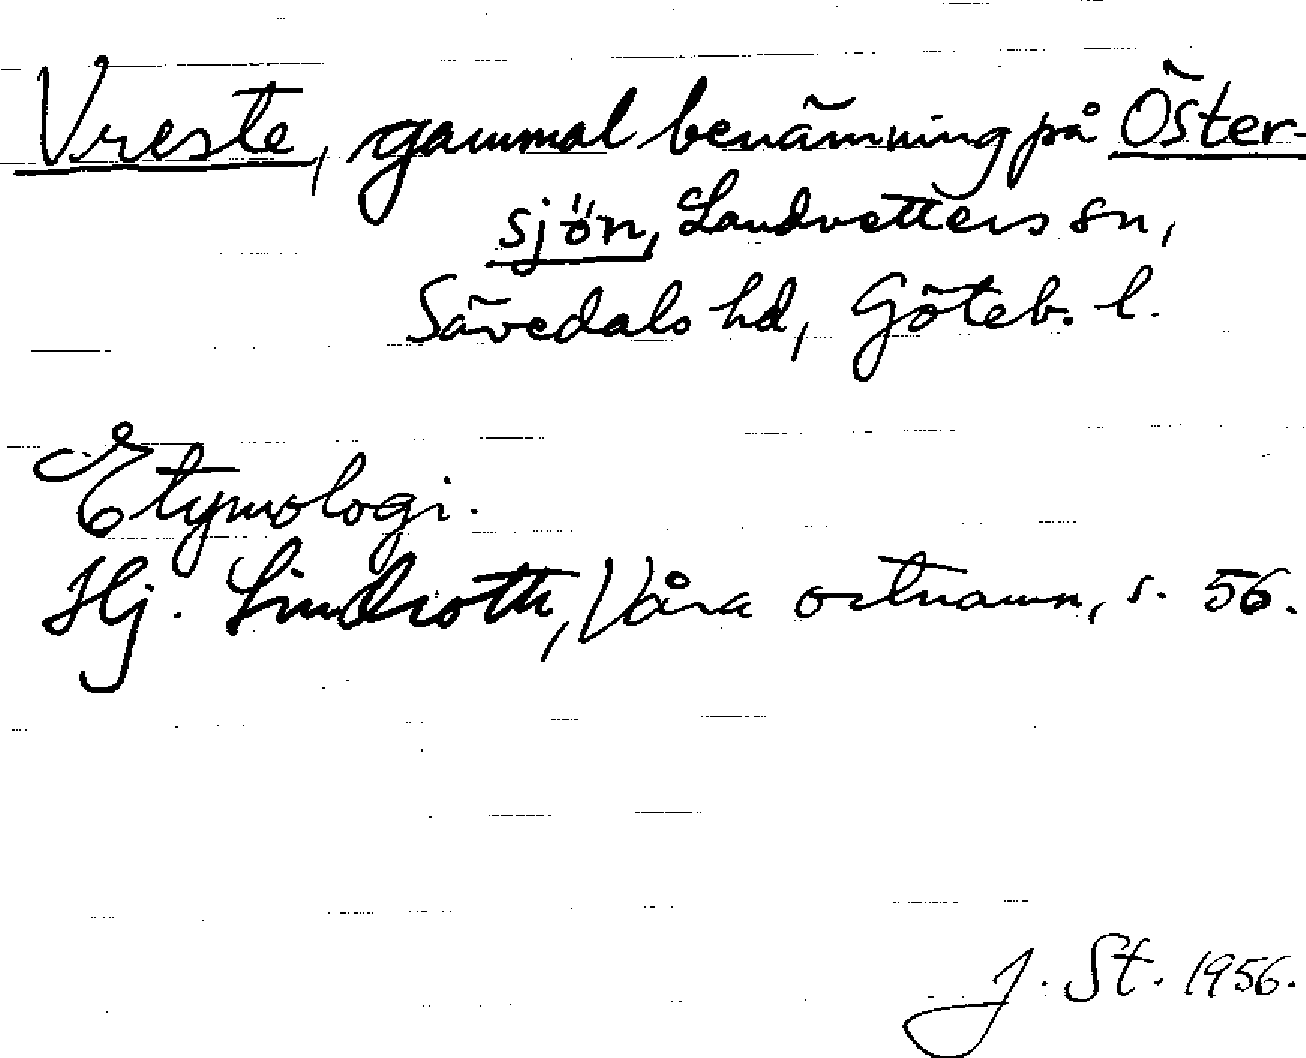 Vreste, gammal benämning på Öster-
sjön, Landvetters sn,
Sävedals hd, Göteb. l.
Etymologi.
Hj. Lindroth, Våra ortnamn, s. 56.
J. St. 1956.